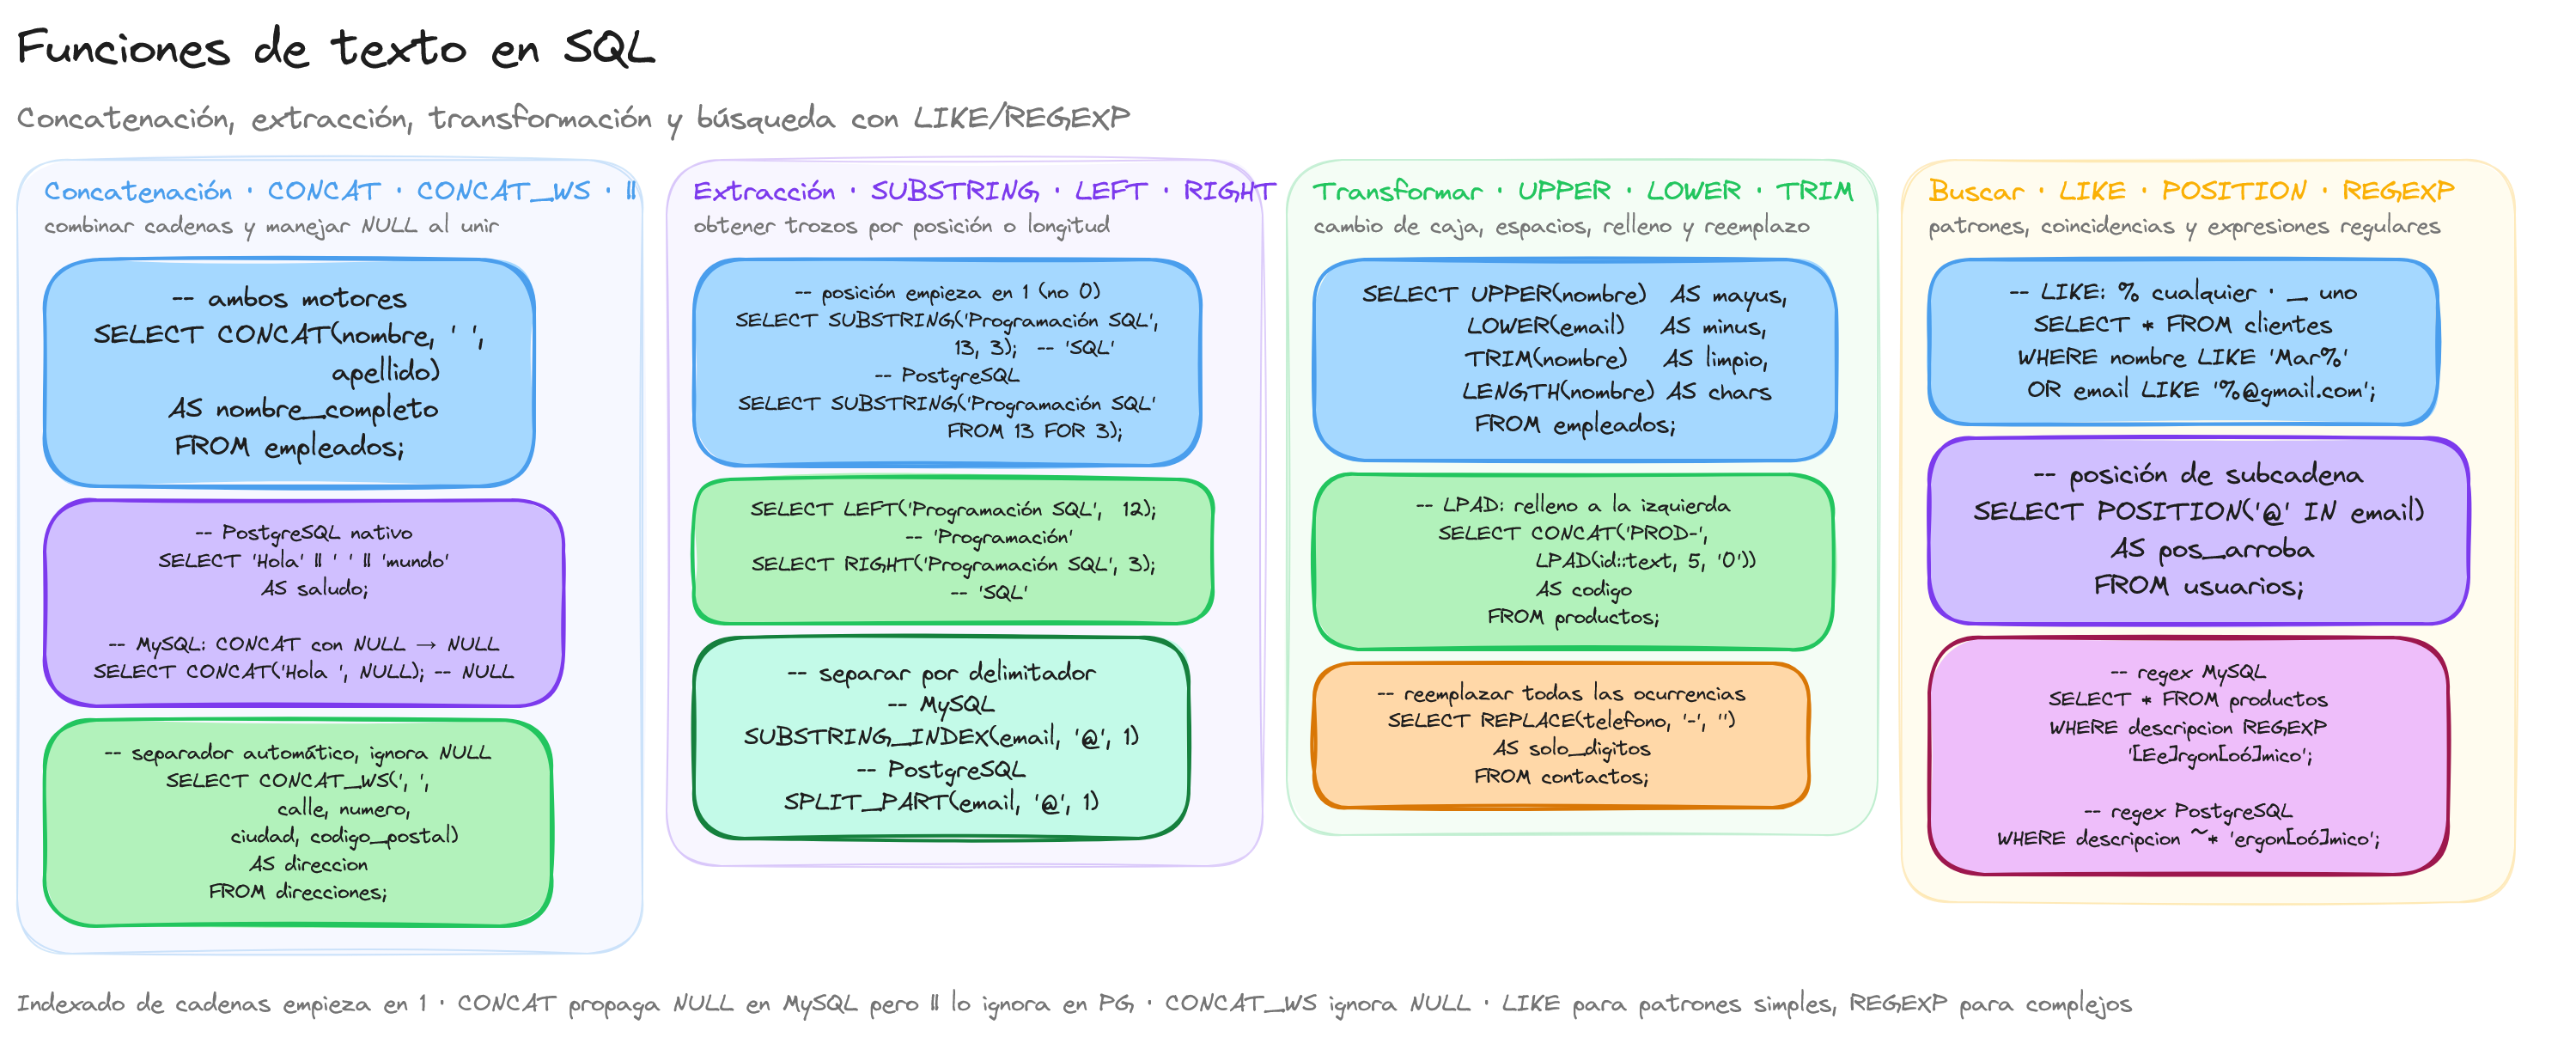 Funciones de texto en SQL
Concatenación, extracción, transformación y búsqueda con LIKE/REGEXP
Concatenación · CONCAT · CONCAT_WS · ||
combinar cadenas y manejar NULL al unir
-- ambos motores
SELECT CONCAT(nombre, ' ',
apellido)
AS nombre_completo
FROM empleados;
-- PostgreSQL nativo
SELECT 'Hola' || ' ' || 'mundo'
AS saludo;
-- MySQL: CONCAT con NULL → NULL
SELECT CONCAT('Hola ', NULL); -- NULL
-- separador automático, ignora NULL
SELECT CONCAT_WS(', ',
calle, numero,
ciudad, codigo_postal)
AS direccion
FROM direcciones;
Extracción · SUBSTRING · LEFT · RIGHT
obtener trozos por posición o longitud
-- posición empieza en 1 (no 0)
SELECT SUBSTRING('Programación SQL',
13, 3);  -- 'SQL'
-- PostgreSQL
SELECT SUBSTRING('Programación SQL'
FROM 13 FOR 3);
SELECT LEFT('Programación SQL',  12);
-- 'Programación'
SELECT RIGHT('Programación SQL', 3);
-- 'SQL'
-- separar por delimitador
-- MySQL
SUBSTRING_INDEX(email, '@', 1)
-- PostgreSQL
SPLIT_PART(email, '@', 1)
Transformar · UPPER · LOWER · TRIM
cambio de caja, espacios, relleno y reemplazo
SELECT UPPER(nombre)  AS mayus,
LOWER(email)   AS minus,
TRIM(nombre)   AS limpio,
LENGTH(nombre) AS chars
FROM empleados;
-- LPAD: relleno a la izquierda
SELECT CONCAT('PROD-',
LPAD(id::text, 5, '0'))
AS codigo
FROM productos;
-- reemplazar todas las ocurrencias
SELECT REPLACE(telefono, '-', '')
AS solo_digitos
FROM contactos;
Buscar · LIKE · POSITION · REGEXP
patrones, coincidencias y expresiones regulares
-- LIKE: % cualquier · _ uno
SELECT * FROM clientes
WHERE nombre LIKE 'Mar%'
OR email LIKE '%@gmail.com';
-- posición de subcadena
SELECT POSITION('@' IN email)
AS pos_arroba
FROM usuarios;
-- regex MySQL
SELECT * FROM productos
WHERE descripcion REGEXP
'[Ee]rgon[oó]mico';
-- regex PostgreSQL
WHERE descripcion ~* 'ergon[oó]mico';
Indexado de cadenas empieza en 1 · CONCAT propaga NULL en MySQL pero || lo ignora en PG · CONCAT_WS ignora NULL · LIKE para patrones simples, REGEXP para complejos